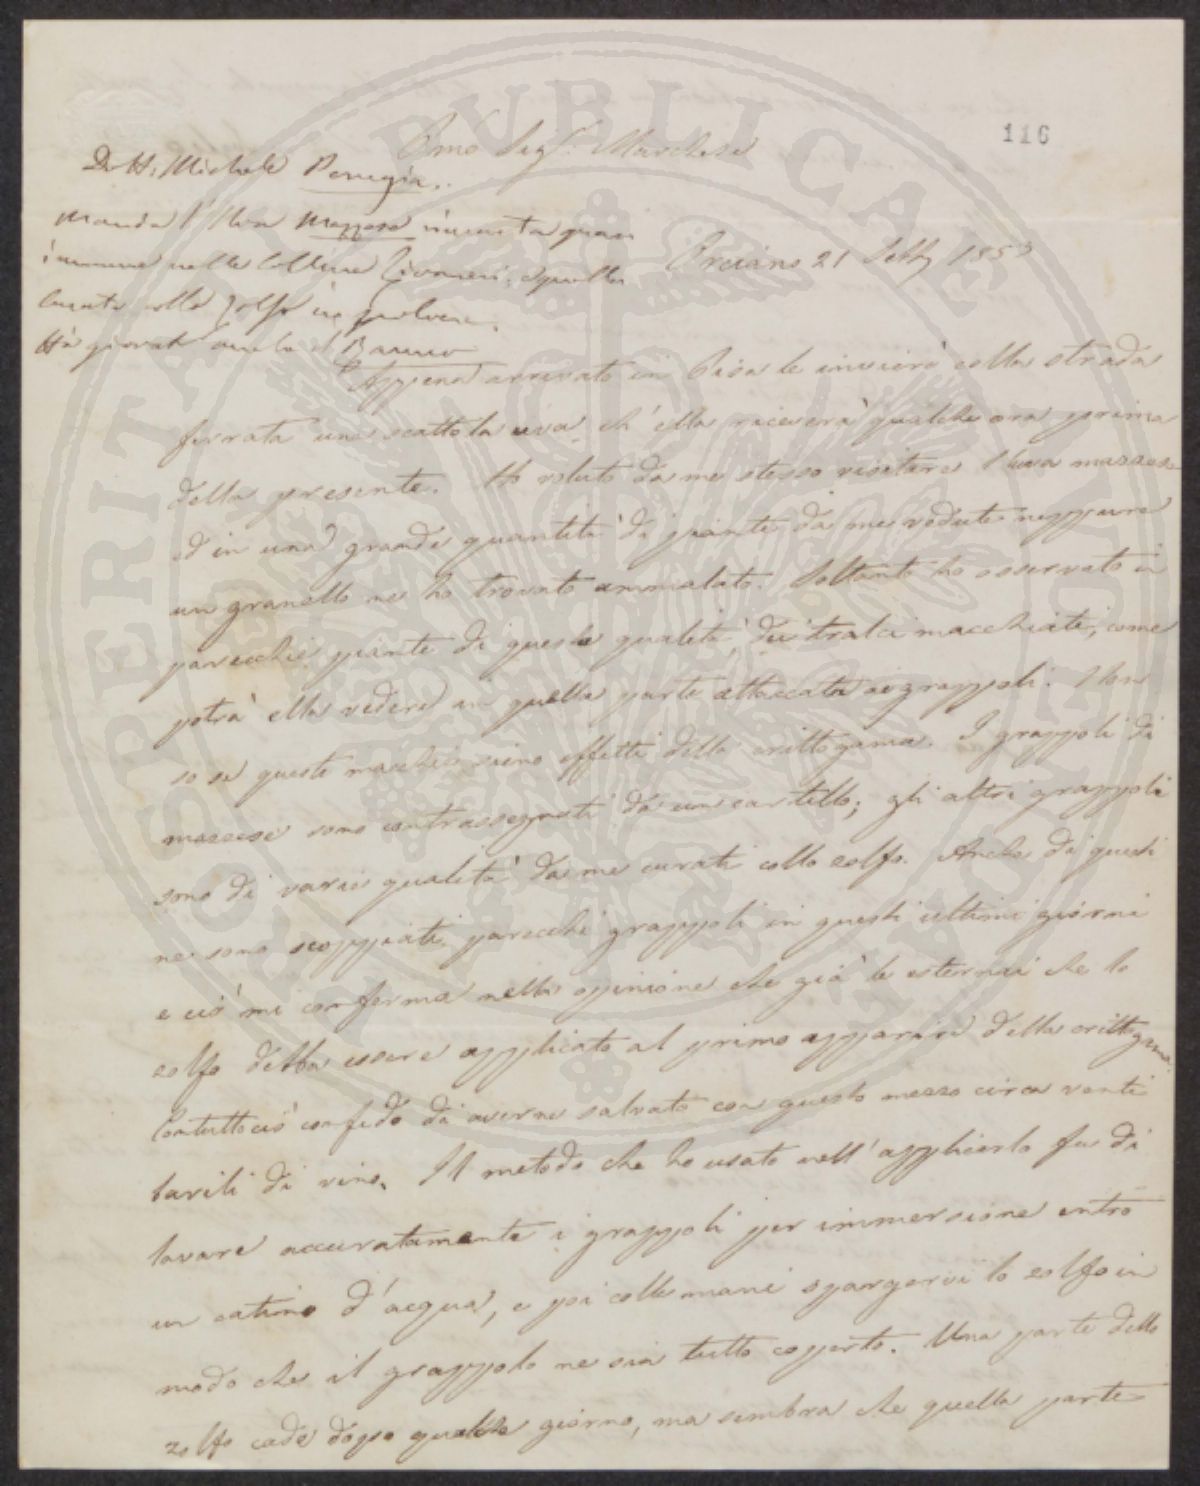 116
Pmo Sigr. Marchese
Dott. Michele Perugia.
Manda l'Uva Mazzese rimasta quasi
immune nelle Colline Pisane, e quella
curata collo Zolfo in polvere.
Ha giovato anche il
Orciano 21 Settb 1853
Appena arrivato in Pisa le invierò colla strada
ferrata una scattola uva ch'ella riceverà qualche ora prima
della presente. Ho voluto da me stesso visitare l'uva mazzese
ed in una grande quantità di piante da me vedute neppure
un granello ne ho trovato ammalato. Soltanto ho osservato in
parecchie piante di queste qualità, dei tralci macchiati, come
potrà ella vedere in quella parte attaccata ai grappoli. Non
so se queste macchie sieno effetti della crittogama. I grappoli di
mazzese sono contrassegnati da un cartello; gli altri grappoli
sono di varie qualità da me curati collo zolfo. Anche di questi
ne sono scoppiati parecchi grappoli in questi ultimi giorni
e ciò mi conferma nella opinione che già le esternai che lo
zolfo debba essere applicato al primo apparire della crittogama.
Contuttociò confido di averne salvato con questo mezzo circa venti
barili di vino. Il metodo che ho usato nell'applicarlo fu di
lavare accuratamente i grappoli per immersione entro
un catino d'acqua, e poi colle mani spargervi lo zolfo in
modo che il grappolo ne sia tutto coperto. Una parte dello
zolfo cade dopo qualche giorno, ma sembra che quella parte
PROSPERITATI PVBLICAE AVGENDAE